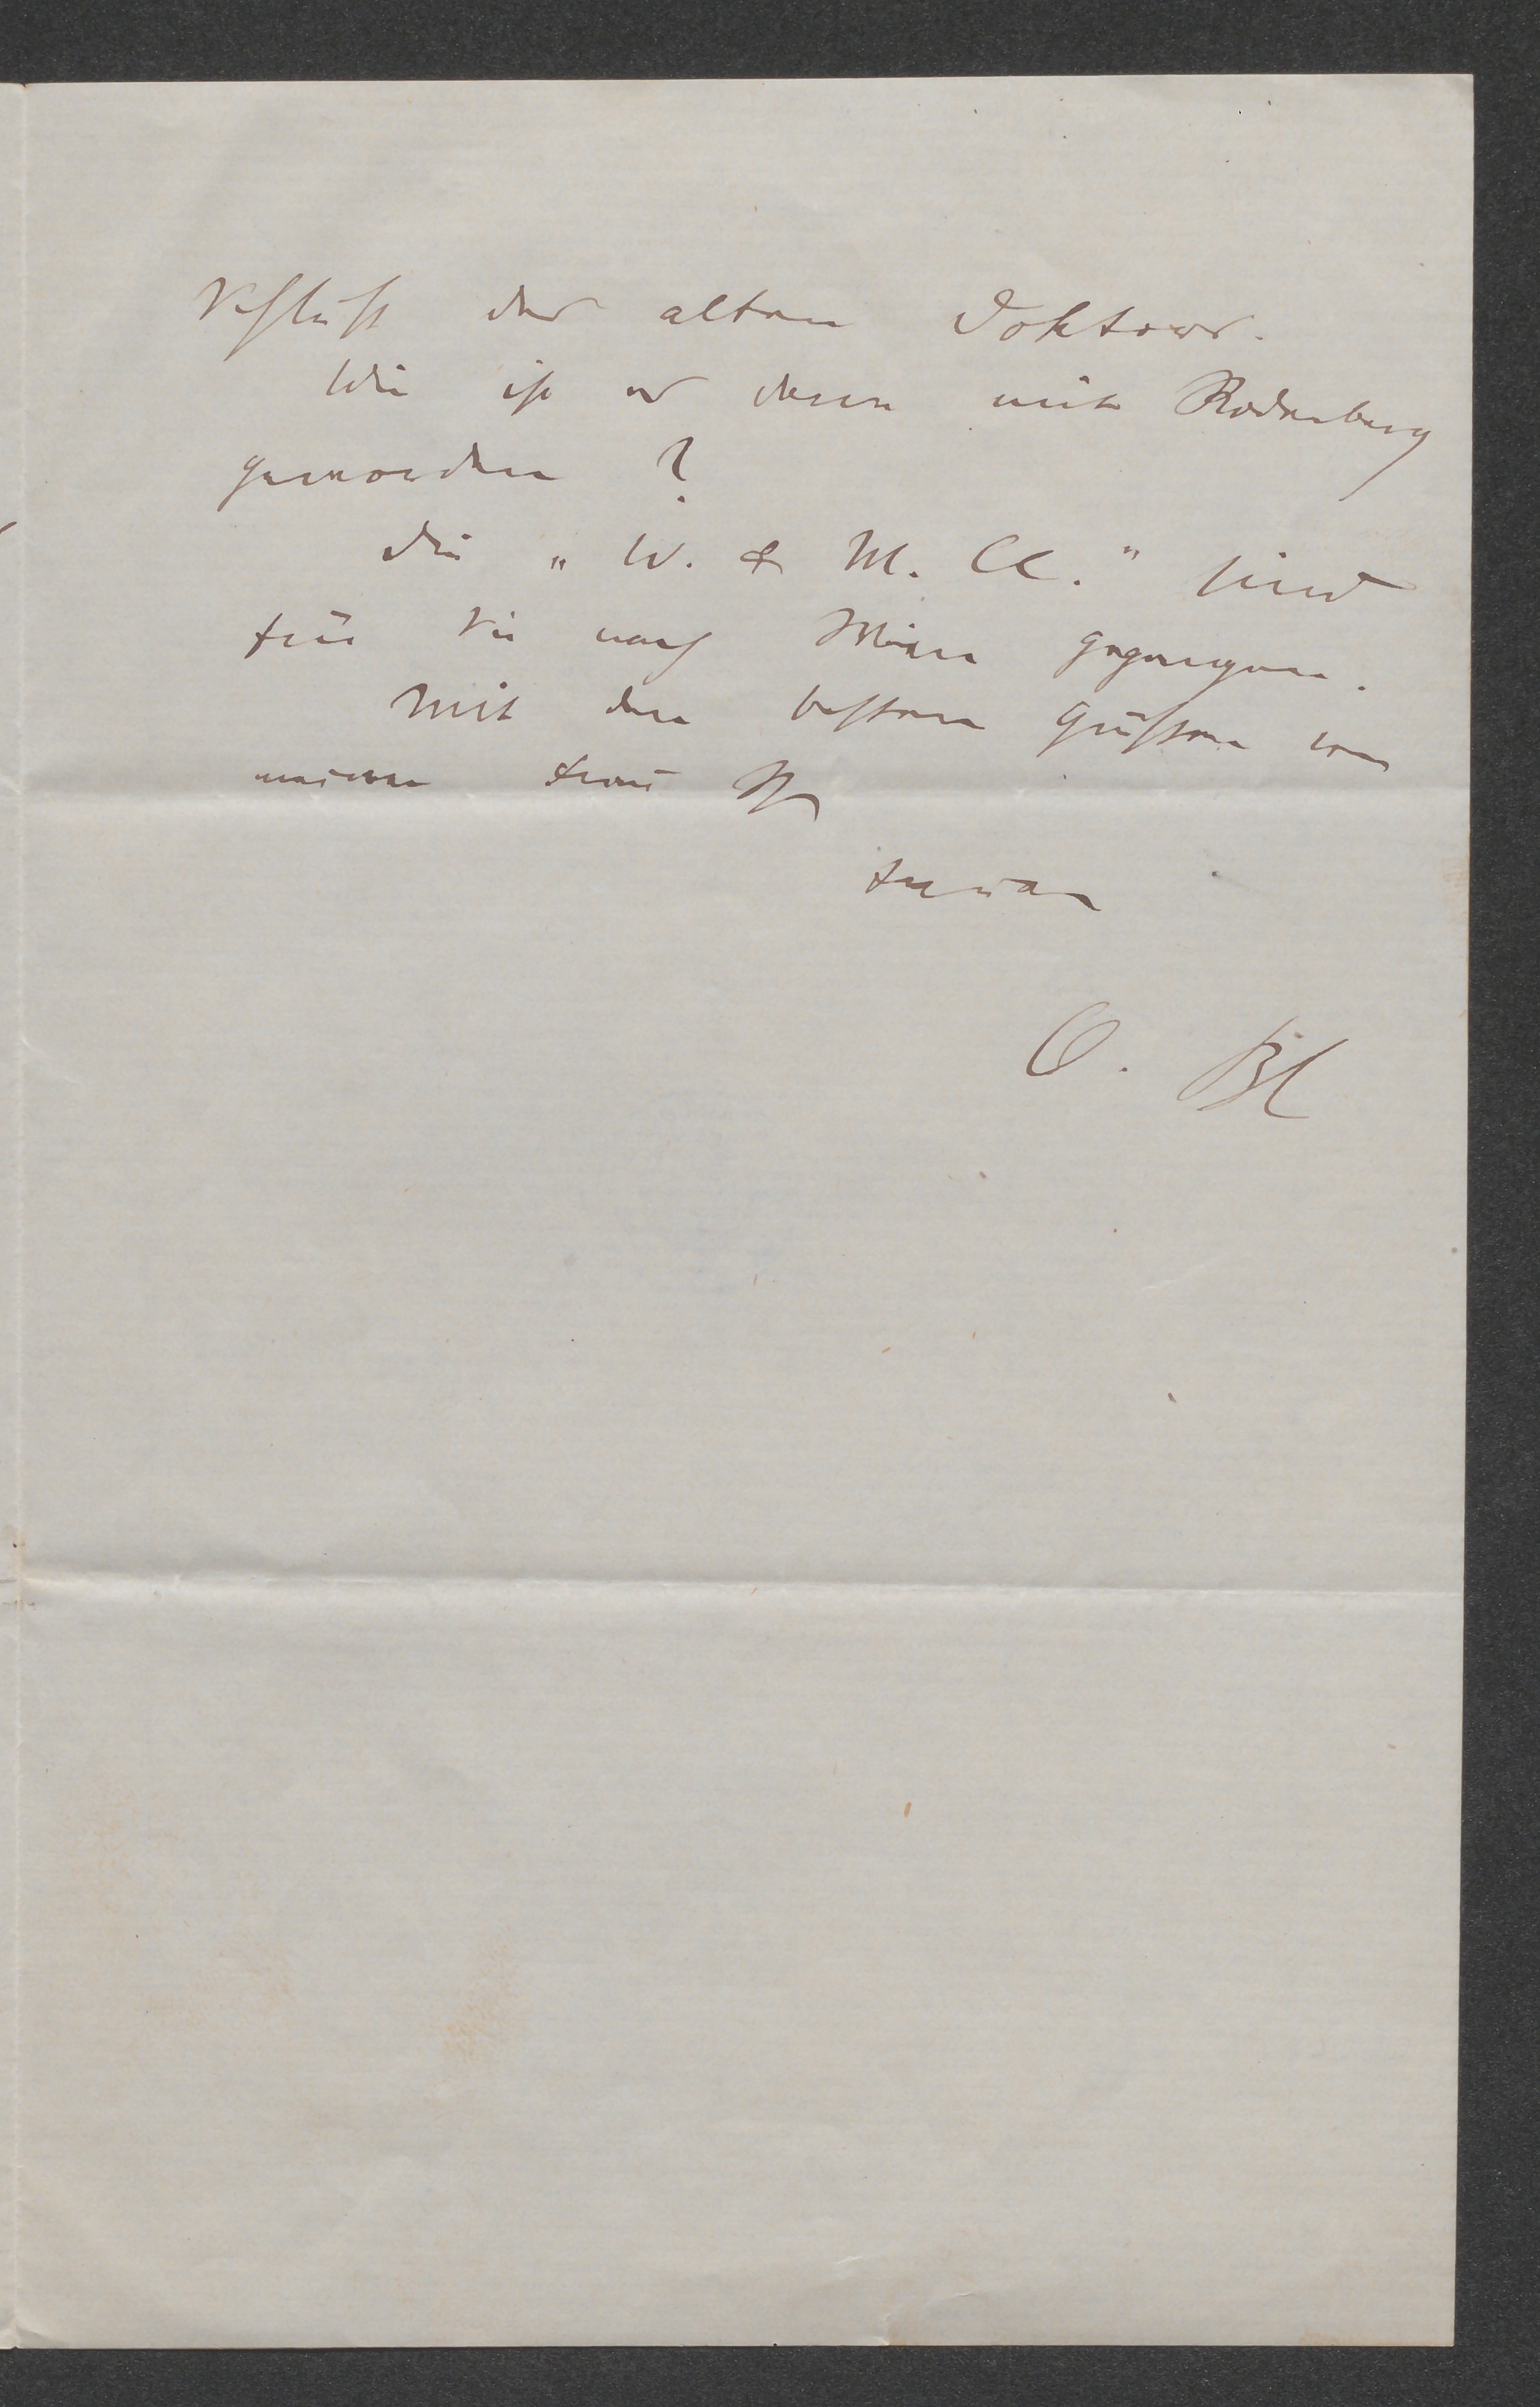 Schluß des alten Doktors.
Wie ist es denn mit Rodenberg
geworden?
Die „W. & M. Cl." sind
für Sie nach Wien gegangen.
Mit den besten Grüßen von
meiner Frau Ihr
treuer
O. Bl